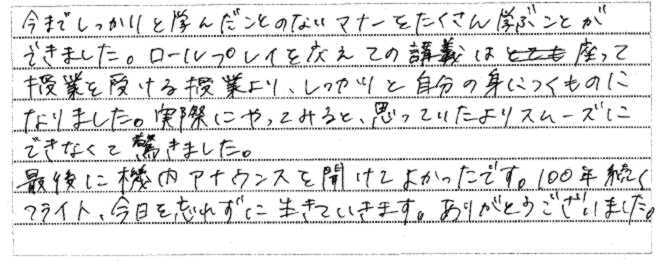 今までしっかりと学んだことのないマナーをたくさん学ぶことが
できました。ロールプレイを交えての講義は座って
授業を受ける授業より、しっかりと自分の身につくものに
なりました。実際にやってみると、思っていたよりスムーズに
できなくて驚きました。
最後に機内アナウンスを聞けてよかったです。100年続く
フライト、今日を忘れずに生きていきます。ありがとうございました。